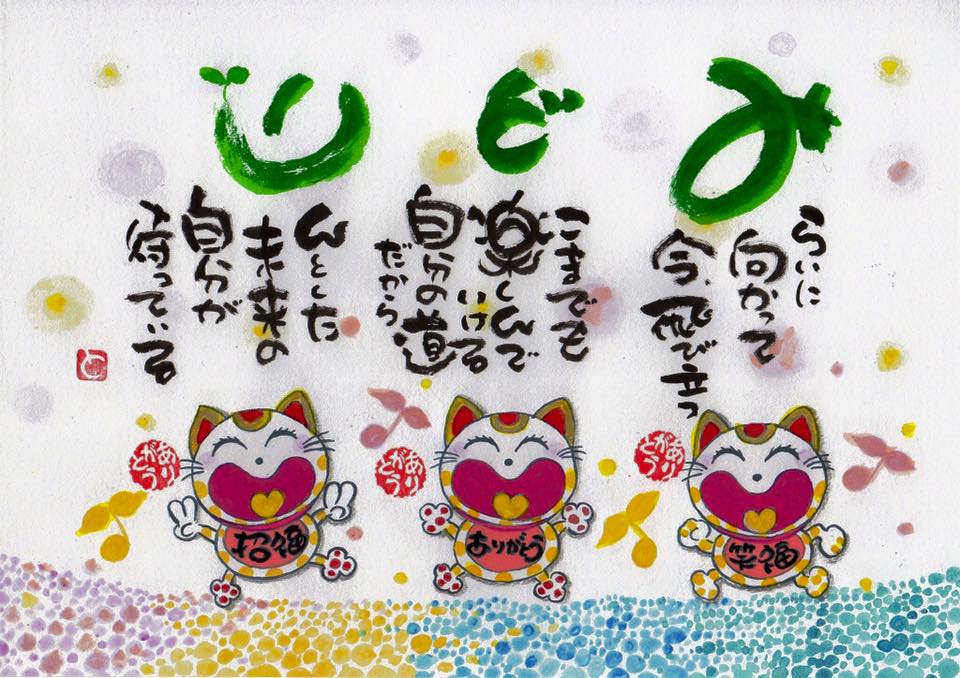 み
らいに
向かって
今、飛び立つ
ど
こまでも
楽しんで
いける
自分の道
だから
り
んとした
未来の
自分が
待っている
と
ありがとう
笑福
ありがとう
ありがとう
ありがとう
招福